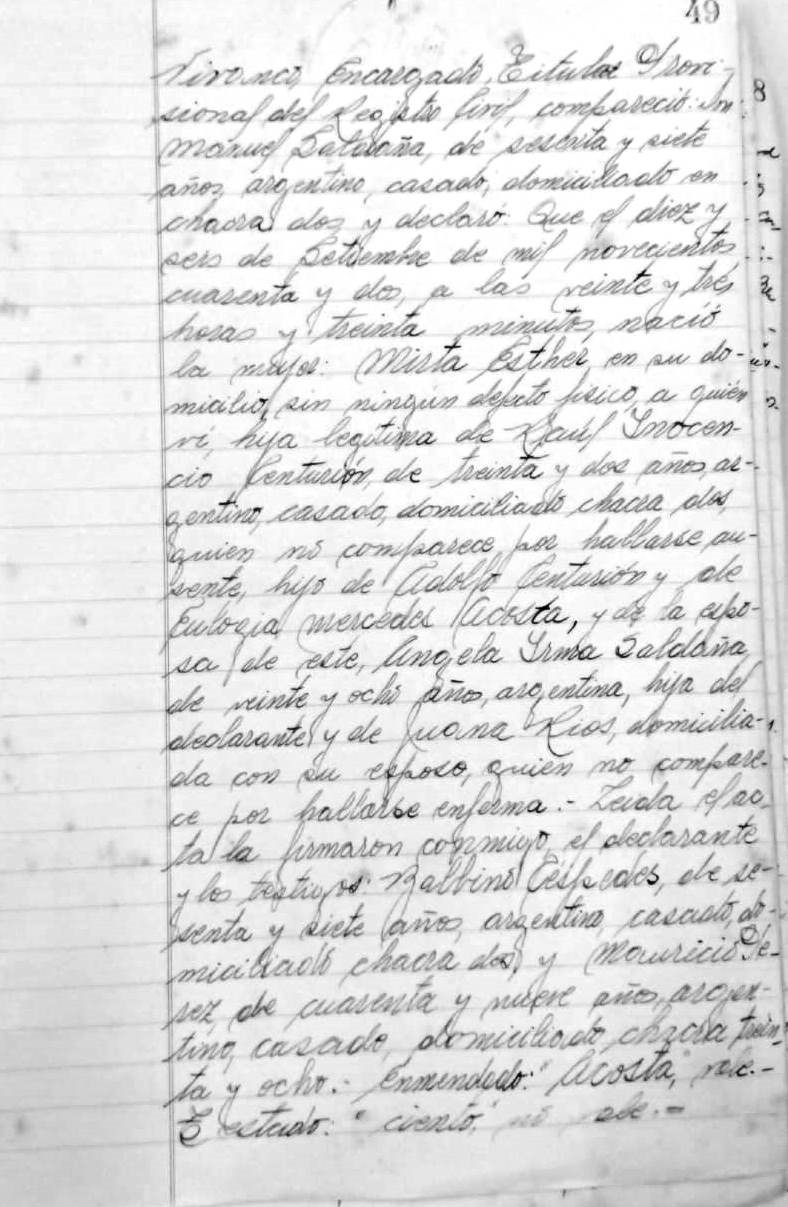 49
Vivanco, Encargado Titular Provi-
sional del Registro Civil, compareció: Don
Manuel Saldaña, de sesenta y siete
años, argentino, casado, domiciliado en
chacra dos, y declaró: Que el diez y
seis de Setiembre de mil novecientos
cuarenta y dos, a las veinte y tres
horas y treinta minutos, nació
la mujer: Mirta Esther, en su do-
micilio, sin ningún defecto físico, a quien
ví, hija legítima de Raúl Inocen-
cio Centurión, de treinta y dos años, ar-
gentino, casado, domiciliado chacra dos,
quien no comparece por hallarse au-
sente, hijo de Adolfo Centurión y de
Eulogia Mercedes Acosta, y de la espo-
sa de este, Angela Irma Saldaña,
de veinte y ocho años, argentina, hija del
declarante y de Juana Rios, domicilia-
da con su esposo, quien no compare-
ce por hallarse enferma.- Leida el ac
ta la firmaron conmigo, el declarante
y los testigos: Balbino Céspedes, de se-
senta y siete años, argentino, casado, do-
miciliado chacra dos, y Mauricio Pé-
rez, de cuarenta y nueve años, argen-
tino, casado, domiciliado chacra trein-
ta y ocho.- Enmendado: "Acosta," vale.-
Testado: "ciento," no vale.-